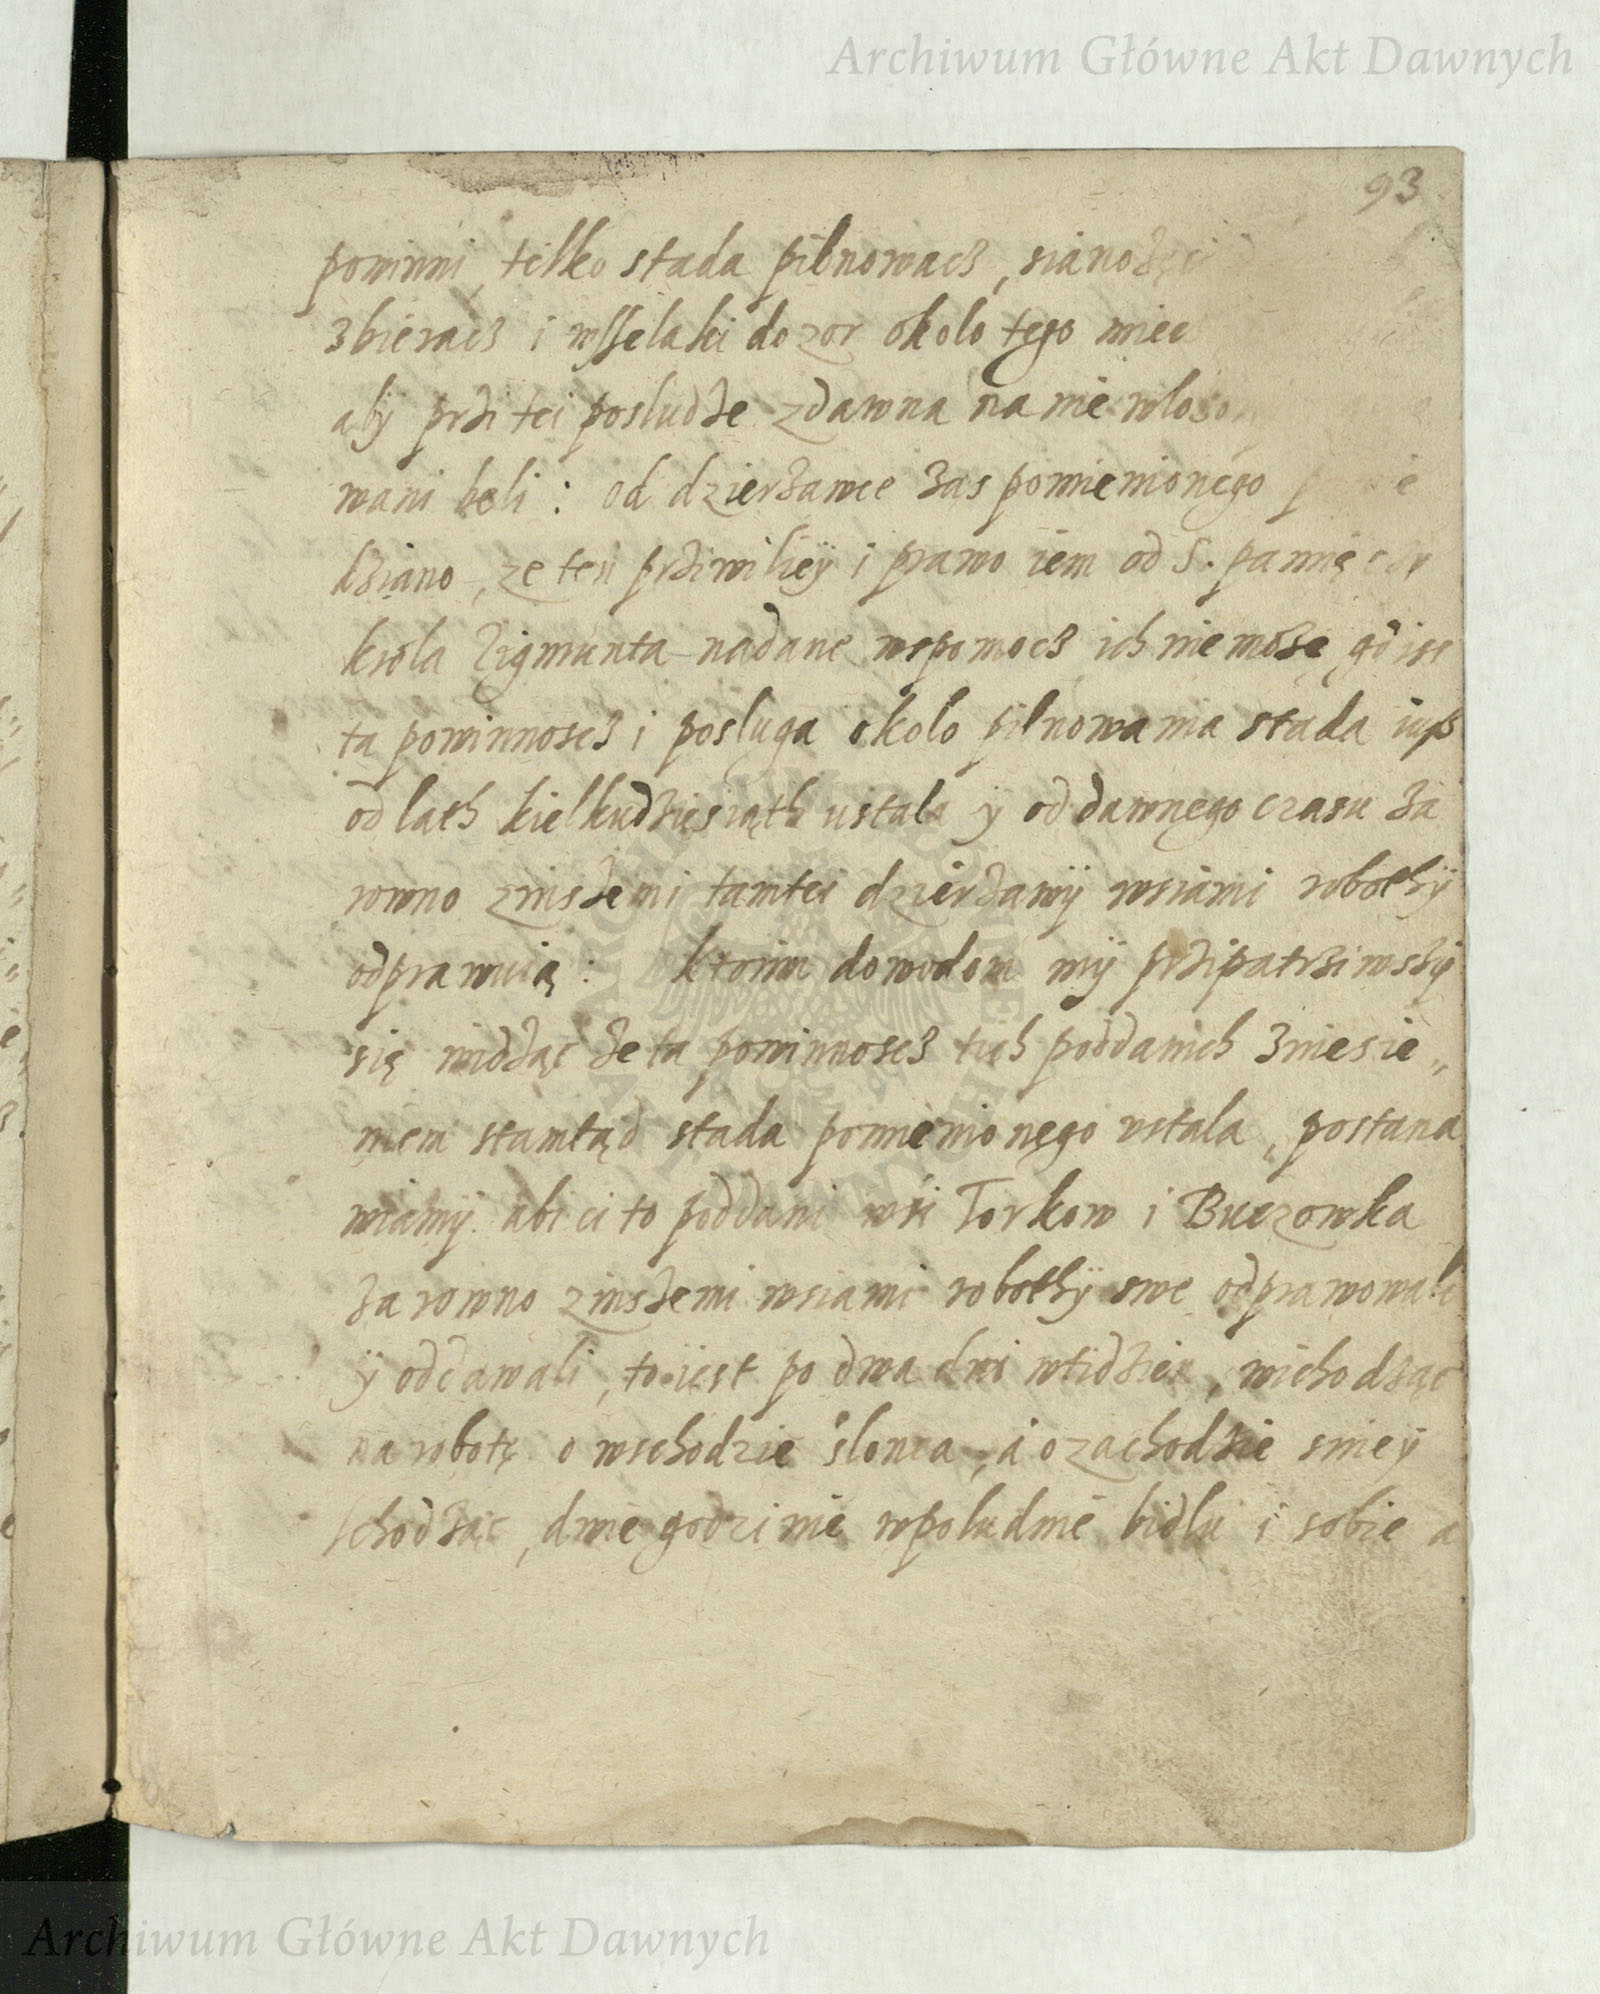 Archiwum Główne Akt Dawnych
93
powinni, telko stada pilnowacz, sianożęci
zbieracz i wsselaki dozor okolo tego miec
aby prżi tei posludże zdawna na nie wloso
wani beli: od dzierżawce żas pomienionego
kżiano, ze ten prżiwiliey i prawo iem od S. pamięczy
krola Zigmunta nadane wspomocz ich nie może, gdisz
ta powinnoscz i posluga okolo pilnowania stada iusz
od lath kielkudżiesiąth ustala ÿ od dawnego czasu ża
rowno zinszemi tamtei dzierżawÿ wsiami robothÿ
odprawuią: ktorim dowodom mÿ prżipatrżiwszÿ
się widżąc że ta powinnoscz tich poddanich zniesie„
niem stamtąd stada pomienionego ustala, postana
wiamÿ abi ci to poddani wsi Torkow i Buczowka
żarowno zinszemi wsiami robothÿ swe odprawowali
ÿ oddawali, to iest po dwa dni wtidżien, wichodżąc
na robotę o wschodzie slonca, a o zachodzie sniey
schodżąc, dwie godzinie wpoludnie bidlu i sobie a
Archiwum Główne Akt Dawnych